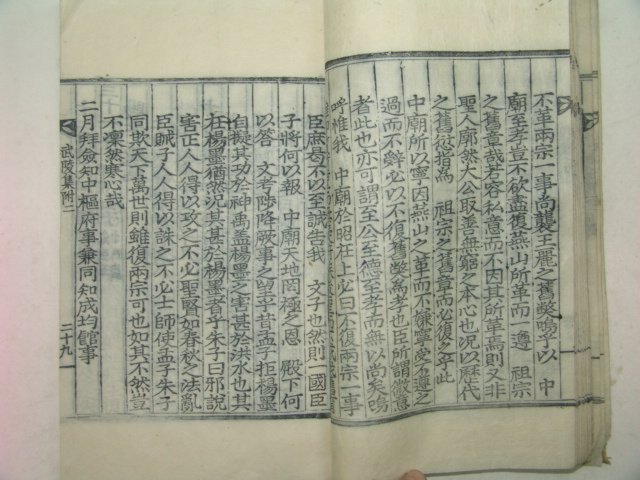 不革兩宗一事尚襲王麗之舊弊嗚乎以 中
廟至孝豈不欲盡復燕山所革而一遵 祖宗
之舊章哉若容私意而不因其所革焉則又非
聖人廓然大公取善無窮之本心也況以歷代
之舊愆指爲 祖宗之舊章而必復之乎此
中廟所以寧因燕山之革而不嫌寧受不遵之
過而不辭必以不復舊弊爲孝也臣所謂徽懿
者此也亦可謂至公至德至孝而無以尚矣嗚
呼惟我 中廟於昭在上必曰不復兩宗一事
臣庶曷不以至誠告我 文子也然則一國臣
子將何以報 中廟天地罔極之恩 殿下何
以答 文考陟降厥事之望乎昔孟子拒楊墨
自擬其功於神禹盖楊墨之害甚於洪水也其
在楊墨猶然況其甚於楊墨者乎朱子曰邪說
害正人人得以攻之不必聖賢如春秋之法亂
臣賊子人人得以誅之不必士師使孟子朱子
同欺天下萬世則雖復兩宗可也如其不然豈
不凜然寒心哉
二月拜僉知中樞府事兼同知成均館事
武陵集附一
二十九